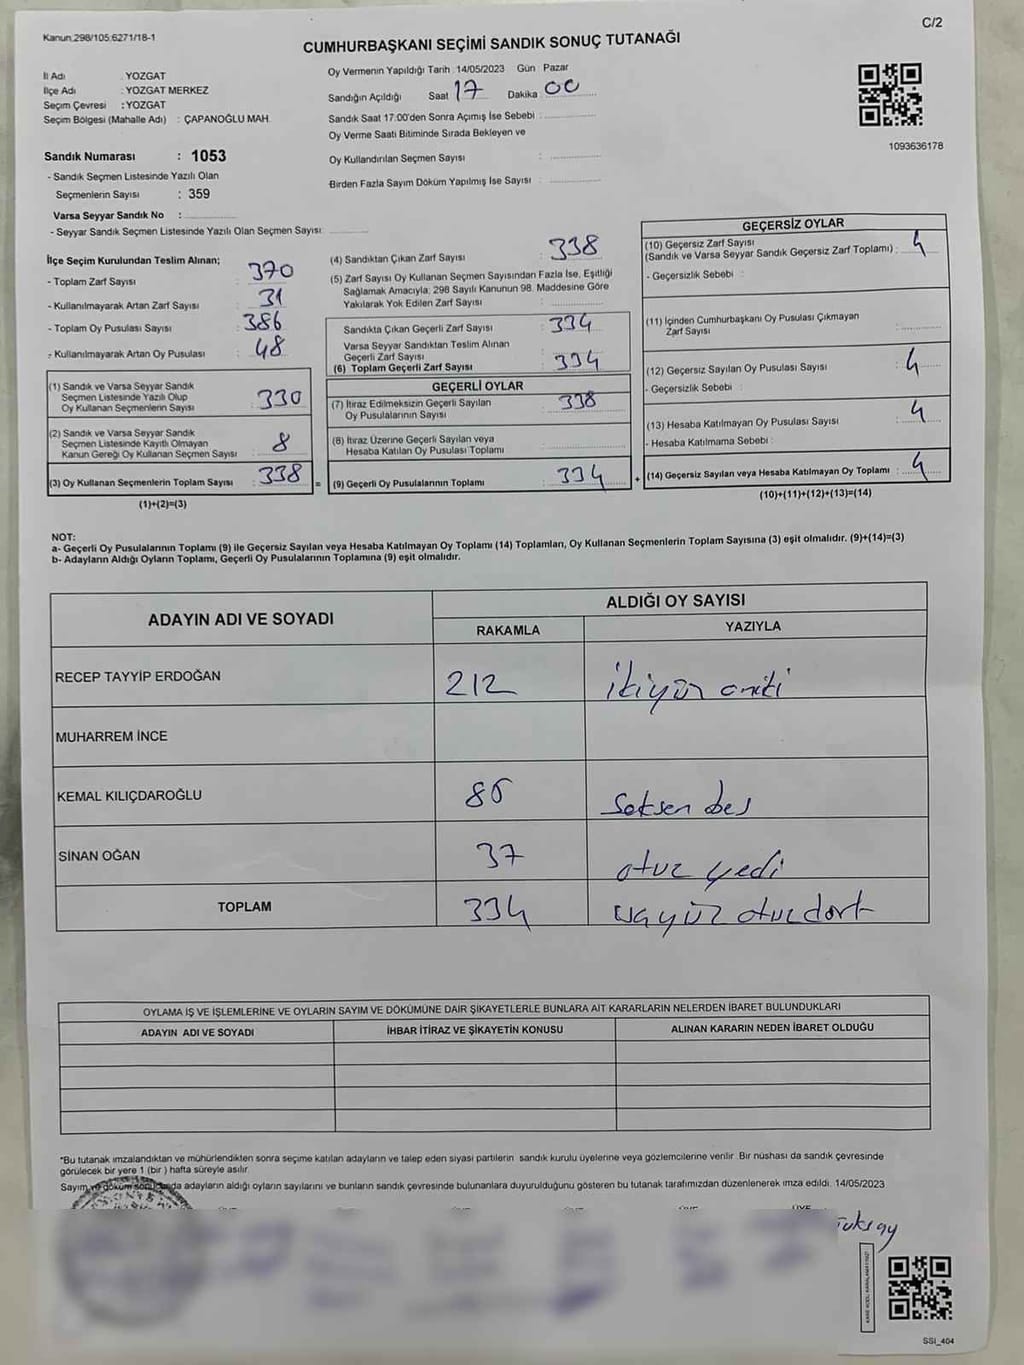 Kanun 298/105 6271/18-1
C/2
CUMHURBAŞKANI SEÇİMİ SANDIK SONUÇ TUTANAĞI
İl Adı : YOZGAT
İlçe Adı : YOZGAT MERKEZ
Seçim Çevresi : YOZGAT
Seçim Bölgesi (Mahalle Adı) : ÇAPANOĞLU MAH.
Sandık Numarası : 1053
- Sandık Seçmen Listesinde Yazılı Olan
Seçmenlerin Sayısı : 359
Varsa Seyyar Sandık No :
- Seyyar Sandık Seçmen Listesinde Yazılı Olan Seçmen Sayısı:
Oy Vermenin Yapıldığı Tarih : 14/05/2023 Gün : Pazar
Sandığın Açıldığı Saat 17 Dakika 00
Sandık Saat 17:00'den Sonra Açımış İse Sebebi :
Oy Verme Saati Bitiminde Sırada Bekleyen ve
Oy Kullandırılan Seçmen Sayısı :
Birden Fazla Sayım Döküm Yapılmış İse Sayısı :
1093636178
İlçe Seçim Kurulundan Teslim Alınan;
- Toplam Zarf Sayısı : 370
- Kullanılmayarak Artan Zarf Sayısı : 31
- Toplam Oy Pusulası Sayısı : 386
- Kullanılmayarak Artan Oy Pusulası : 48
(1) Sandık ve Varsa Seyyar Sandık
Seçmen Listesinde Yazılı Olup
Oy Kullanan Seçmenlerin Sayısı : 330
(2) Sandık ve Varsa Seyyar Sandık
Seçmen Listesinde Kayıtlı Olmayan
Kanun Gereği Oy Kullanan Seçmen Sayısı : 8
(3) Oy Kullanan Seçmenlerin Toplam Sayısı : 338
(1)+(2)=(3)
(4) Sandıktan Çıkan Zarf Sayısı : 338
(5) Zarf Sayısı Oy Kullanan Seçmen Sayısından Fazla İse, Eşitliği
Sağlamak Amacıyla; 298 Sayılı Kanunun 98. Maddesine Göre
Yakılarak Yok Edilen Zarf Sayısı :
Sandıkta Çıkan Geçerli Zarf Sayısı : 334
Varsa Seyyar Sandıktan Teslim Alınan
Geçerli Zarf Sayısı :
(6) Toplam Geçerli Zarf Sayısı 334
GEÇERLİ OYLAR
(7) İtiraz Edilmeksizin Geçerli Sayılan
Oy Pusulalarının Sayısı : 338
(8) İtiraz Üzerine Geçerli Sayılan veya
Hesaba Katılan Oy Pusulası Toplamı :
= (9) Geçerli Oy Pusulalarının Toplamı : 334
GEÇERSİZ OYLAR
(10) Geçersiz Zarf Sayısı
(Sandık ve Varsa Seyyar Sandık Geçersiz Zarf Toplamı) : 4
- Geçersizlik Sebebi :
(11) İçinden Cumhurbaşkanı Oy Pusulası Çıkmayan
Zarf Sayısı :
(12) Geçersiz Sayılan Oy Pusulası Sayısı : 4
- Geçersizlik Sebebi :
(13) Hesaba Katılmayan Oy Pusulası Sayısı : 4
- Hesaba Katılmama Sebebi :
+ (14) Geçersiz Sayılan veya Hesaba Katılmayan Oy Toplamı : 4
(10)+(11)+(12)+(13)=(14)
NOT:
a- Geçerli Oy Pusulalarının Toplamı (9) ile Geçersiz Sayılan veya Hesaba Katılmayan Oy Toplamı (14) Toplamları, Oy Kullanan Seçmenlerin Toplam Sayısına (3) eşit olmalıdır. (9)+(14)=(3)
b- Adayların Aldığı Oyların Toplamı, Geçerli Oy Pusulalarının Toplamına (9) eşit olmalıdır.
ADAYIN ADI VE SOYADI
ALDIĞI OY SAYISI
RAKAMLA YAZIYLA
RECEP TAYYİP ERDOĞAN 212 ikiyüz oniki
MUHARREM İNCE
KEMAL KILIÇDAROĞLU 85 Seksen beş
SİNAN OĞAN 37 otuz yedi
TOPLAM 334 üçyüz otuzdört
OYLAMA İŞ VE İŞLEMLERİNE VE OYLARIN SAYIM VE DÖKÜMÜNE DAİR ŞİKAYETLERLE BUNLARA AİT KARARLARIN NELERDEN İBARET BULUNDUKLARI
ADAYIN ADI VE SOYADI İHBAR İTİRAZ VE ŞİKAYETİN KONUSU ALINAN KARARIN NEDEN İBARET OLDUĞU
*Bu tutanak imzalandıktan ve mühürlendikten sonra seçime katılan adayların ve talep eden siyasi partilerin sandık kurulu üyelerine veya gözlemcilerine verilir. Bir nüshası da sandık çevresinde
görülecek bir yere 1 (bir ) hafta süreyle asılır.
Sayım ve döküm sonucunda adayların aldığı oyların sayılarını ve bunların sandık çevresinde bulunanlara duyurulduğunu gösteren bu tutanak tarafımızdan düzenlenerek imza edildi. 14/05/2023
SSI_404